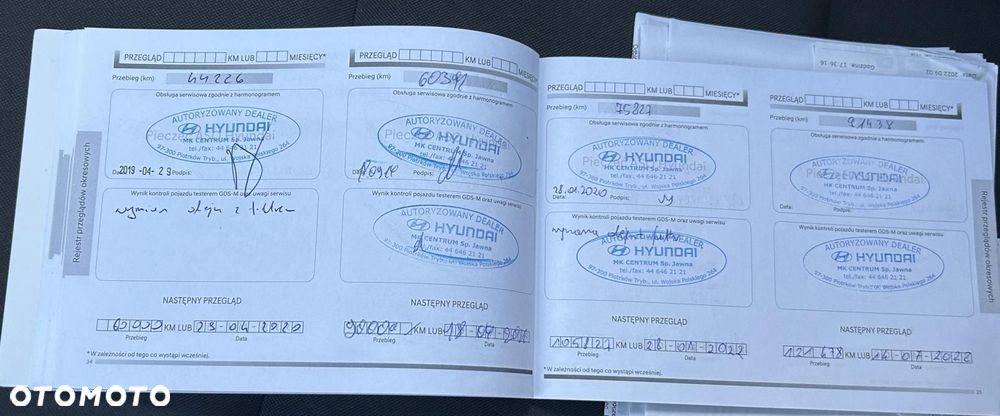 PRZEGLĄD KM LUB MIESIĘCY*
Przebieg (km) 44226
Obsługa serwisowa zgodnie z harmonogramem
AUTORYZOWANY DEALER
HYUNDAI
MK CENTRUM Sp. Jawna
tel./fax: 44 646 21 21
97-300 Piotrków Tryb., ul. Wojska Polskiego 264
2019 -04- 29 Podpis:
Wynik kontroli pojazdu testerem GDS-M oraz uwagi serwisu
NASTĘPNY PRZEGLĄD
KM LUB 29-04-2020
Przebieg Data
* W zależności od tego co wystąpi wcześniej.
34
Rejestr przeglądów okresowych
PRZEGLĄD KM LUB MIESIĘCY*
Przebieg (km)
Obsługa serwisowa zgodnie z harmonogramem
AUTORYZOWANY DEALER
HYUNDAI
MK CENTRUM Sp. Jawna
tel./fax: 44 646 21 21
Podpis:
Wynik kontroli pojazdu testerem GDS-M oraz uwagi serwisu
AUTORYZOWANY DEALER
HYUNDAI
MK CENTRUM Sp. Jawna
tel./fax: 44 646 21 21
97-300 Piotrków Tryb., ul. Wojska Polskiego 264
NASTĘPNY PRZEGLĄD
KM LUB
Przebieg Data
PRZEGLĄD KM LUB MIESIĘCY*
Przebieg (km) 75827
Obsługa serwisowa zgodnie z harmonogramem
AUTORYZOWANY DEALER
HYUNDAI
MK CENTRUM Sp. Jawna
tel./fax: 44 646 21 21
97-300 Piotrków Tryb., ul. Wojska Polskiego 264
28.01.2020
Data: Podpis:
Wynik kontroli pojazdu testerem GDS-M oraz uwagi serwisu
AUTORYZOWANY DEALER
HYUNDAI
MK CENTRUM Sp. Jawna
tel./fax: 44 646 21 21
97-300 Piotrków Tryb., ul. Wojska Polskiego 264
NASTĘPNY PRZEGLĄD
105827 KM LUB 28-01-2022
Przebieg Data
* W zależności od tego co wystąpi wcześniej.
PRZEGLĄD KM LUB MIESIĘCY*
Przebieg (km) 91438
Obsługa serwisowa zgodnie z harmonogramem
AUTORYZOWANY DEALER
HYUNDAI
MK CENTRUM Sp. Jawna
tel./fax: 44 646 21 21
97-300 Piotrków Tryb., ul. Wojska Polskiego 264
Data: Podpis:
Wynik kontroli pojazdu testerem GDS-M oraz uwagi serwisu
AUTORYZOWANY DEALER
HYUNDAI
MK CENTRUM Sp. Jawna
tel./fax: 44 646 21 21
97-300 Piotrków Tryb., ul. Wojska Polskiego 264
NASTĘPNY PRZEGLĄD
KM LUB
Przebieg Data
35
Rejestr przeglądów okresowych
Godzina 17 36 16
Data 2022
OTOMOTO